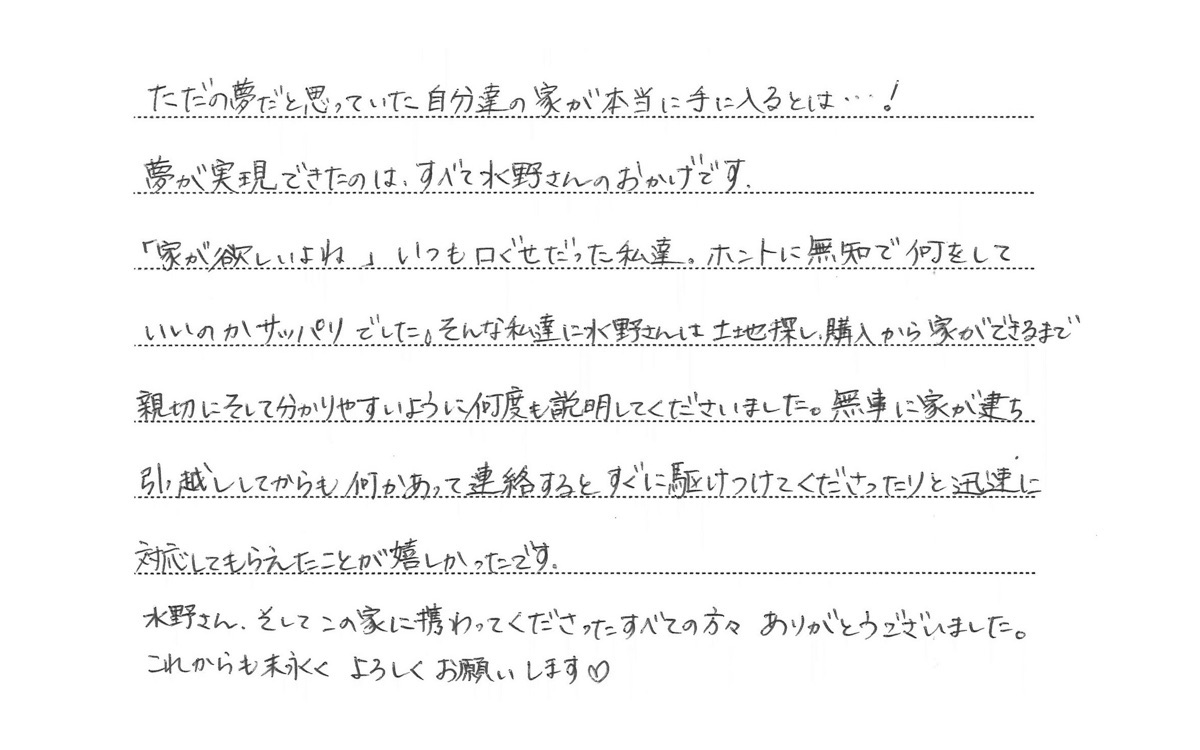 ただの夢だと思っていた自分達の家が本当に手に入るとは…!
夢が実現できたのは、すべて水野さんのおかげです.
「家が欲しいよね」いつも口ぐせだった私達。ホントに無知で何をして
いいのかサッパリでした。そんな私達に水野さんは土地探し、購入から家ができるまで
親切にそして分かりやすいように何度も説明してくださいました。無事に家が建ち
引越ししてからも何かあって連絡するとすぐに駆けつけてくださったりと迅速に
対応してもらえたことが嬉しかったです.
水野さん、そしてこの家に携わってくださったすべての方々 ありがとうございました。
これからも末永く よろしくお願いします♡